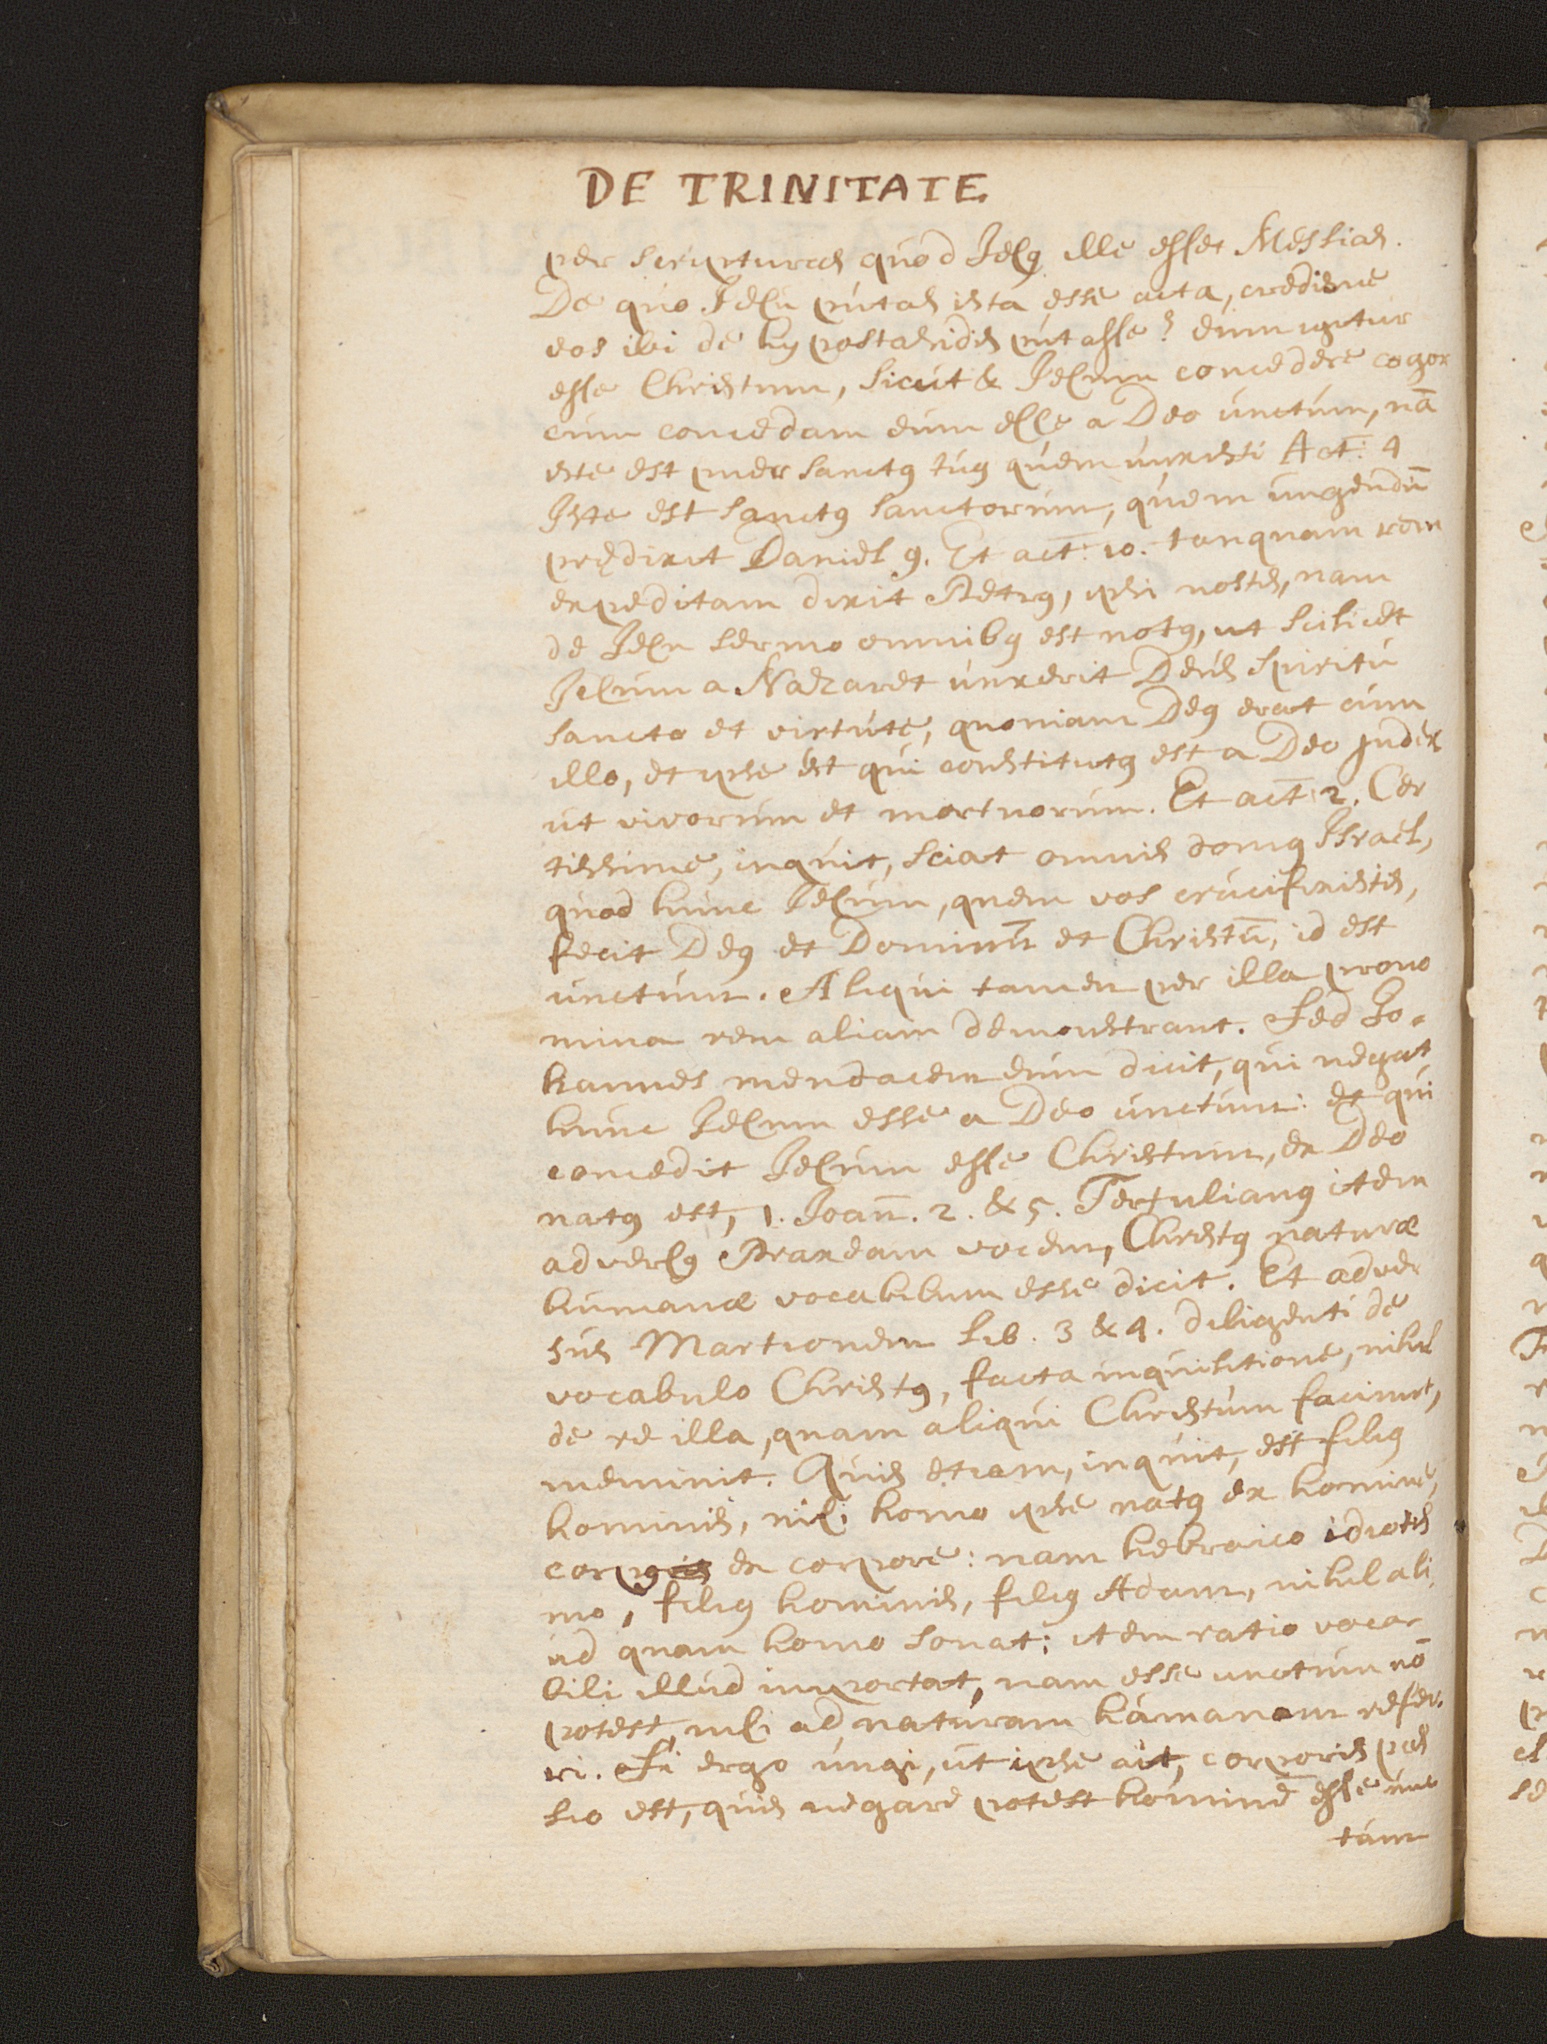 DE TRINITATE
per scripturas quod Jesꝰ ille esset Messias.
De quo Jesu putas ista esse acta, credisne
eos ibi de hypostasidis putasse? eum igitur
esse Christum, sicut & Jesum concedere cogor
cum concedam eum esse a Deo unctum, nā
iste est puer sanctꝰ tuꝰ quem unxisti Act: 4
Iste est sanctꝰ sanctorum, quem ungendū
prędixit Daniel 9. Et act: 10. tanquam rem
expeditam dixit Petrꝰ, ipsi nostis, nam
de Jesu sermo omnibꝰ est notꝰ, ut scilicet
Jesum a Nazaret unxerit Deus spiritu
sancto et virtute, quoniam Deꝰ erat cum
illo, et ipse est qui constitutꝰ est a Deo judex
ut vivorum et mortuorum. Et act 2. Cer
tissime, inquit, sciat omnis domꝰ Israel,
quod hunc Jesum, quem vos crucifixistis,
fecit Deꝰ et Dominū et Christū, id est
unctum. Aliqui tamen per illa prono
mina rem aliam demonstrant. Sed Jo-
hannes mendacem eum dicit, qui negat
hunc Jesum esse a Deo unctum: et qui
concedit Jesum esse Christum, ex Deo
natꝰ est, 1. Joan̄. 2. & 5. Tertulianꝰ item
adversꝰ Praxeam vocem, Christꝰ naturæ
humanæ vocabulum esse dicit. Et adver
sus Martionem lib. 3 & 4. diligenti de
vocabulo Christꝰ, facta inquisitione, nihil
de re illa, quam aliqui Christum faciunt,
meminit. Quis etiam, inquit, est filiꝰ
hominis, nisi homo ipse natꝰ ex homine,
corpꝰ ex corpore: nam hebraico idiotis
mo, filiꝰ hominis, filiꝰ Adam, nihil ali
ud quam homo sonat; item ratio voca-
bili illud importat, nam esse unctum nō
potest, nisi ad naturam humanam refer-
ri. Si ergo ungi, ut ipse ait, corporis pas
sio est, quis negare potest hominē esse unc
tum